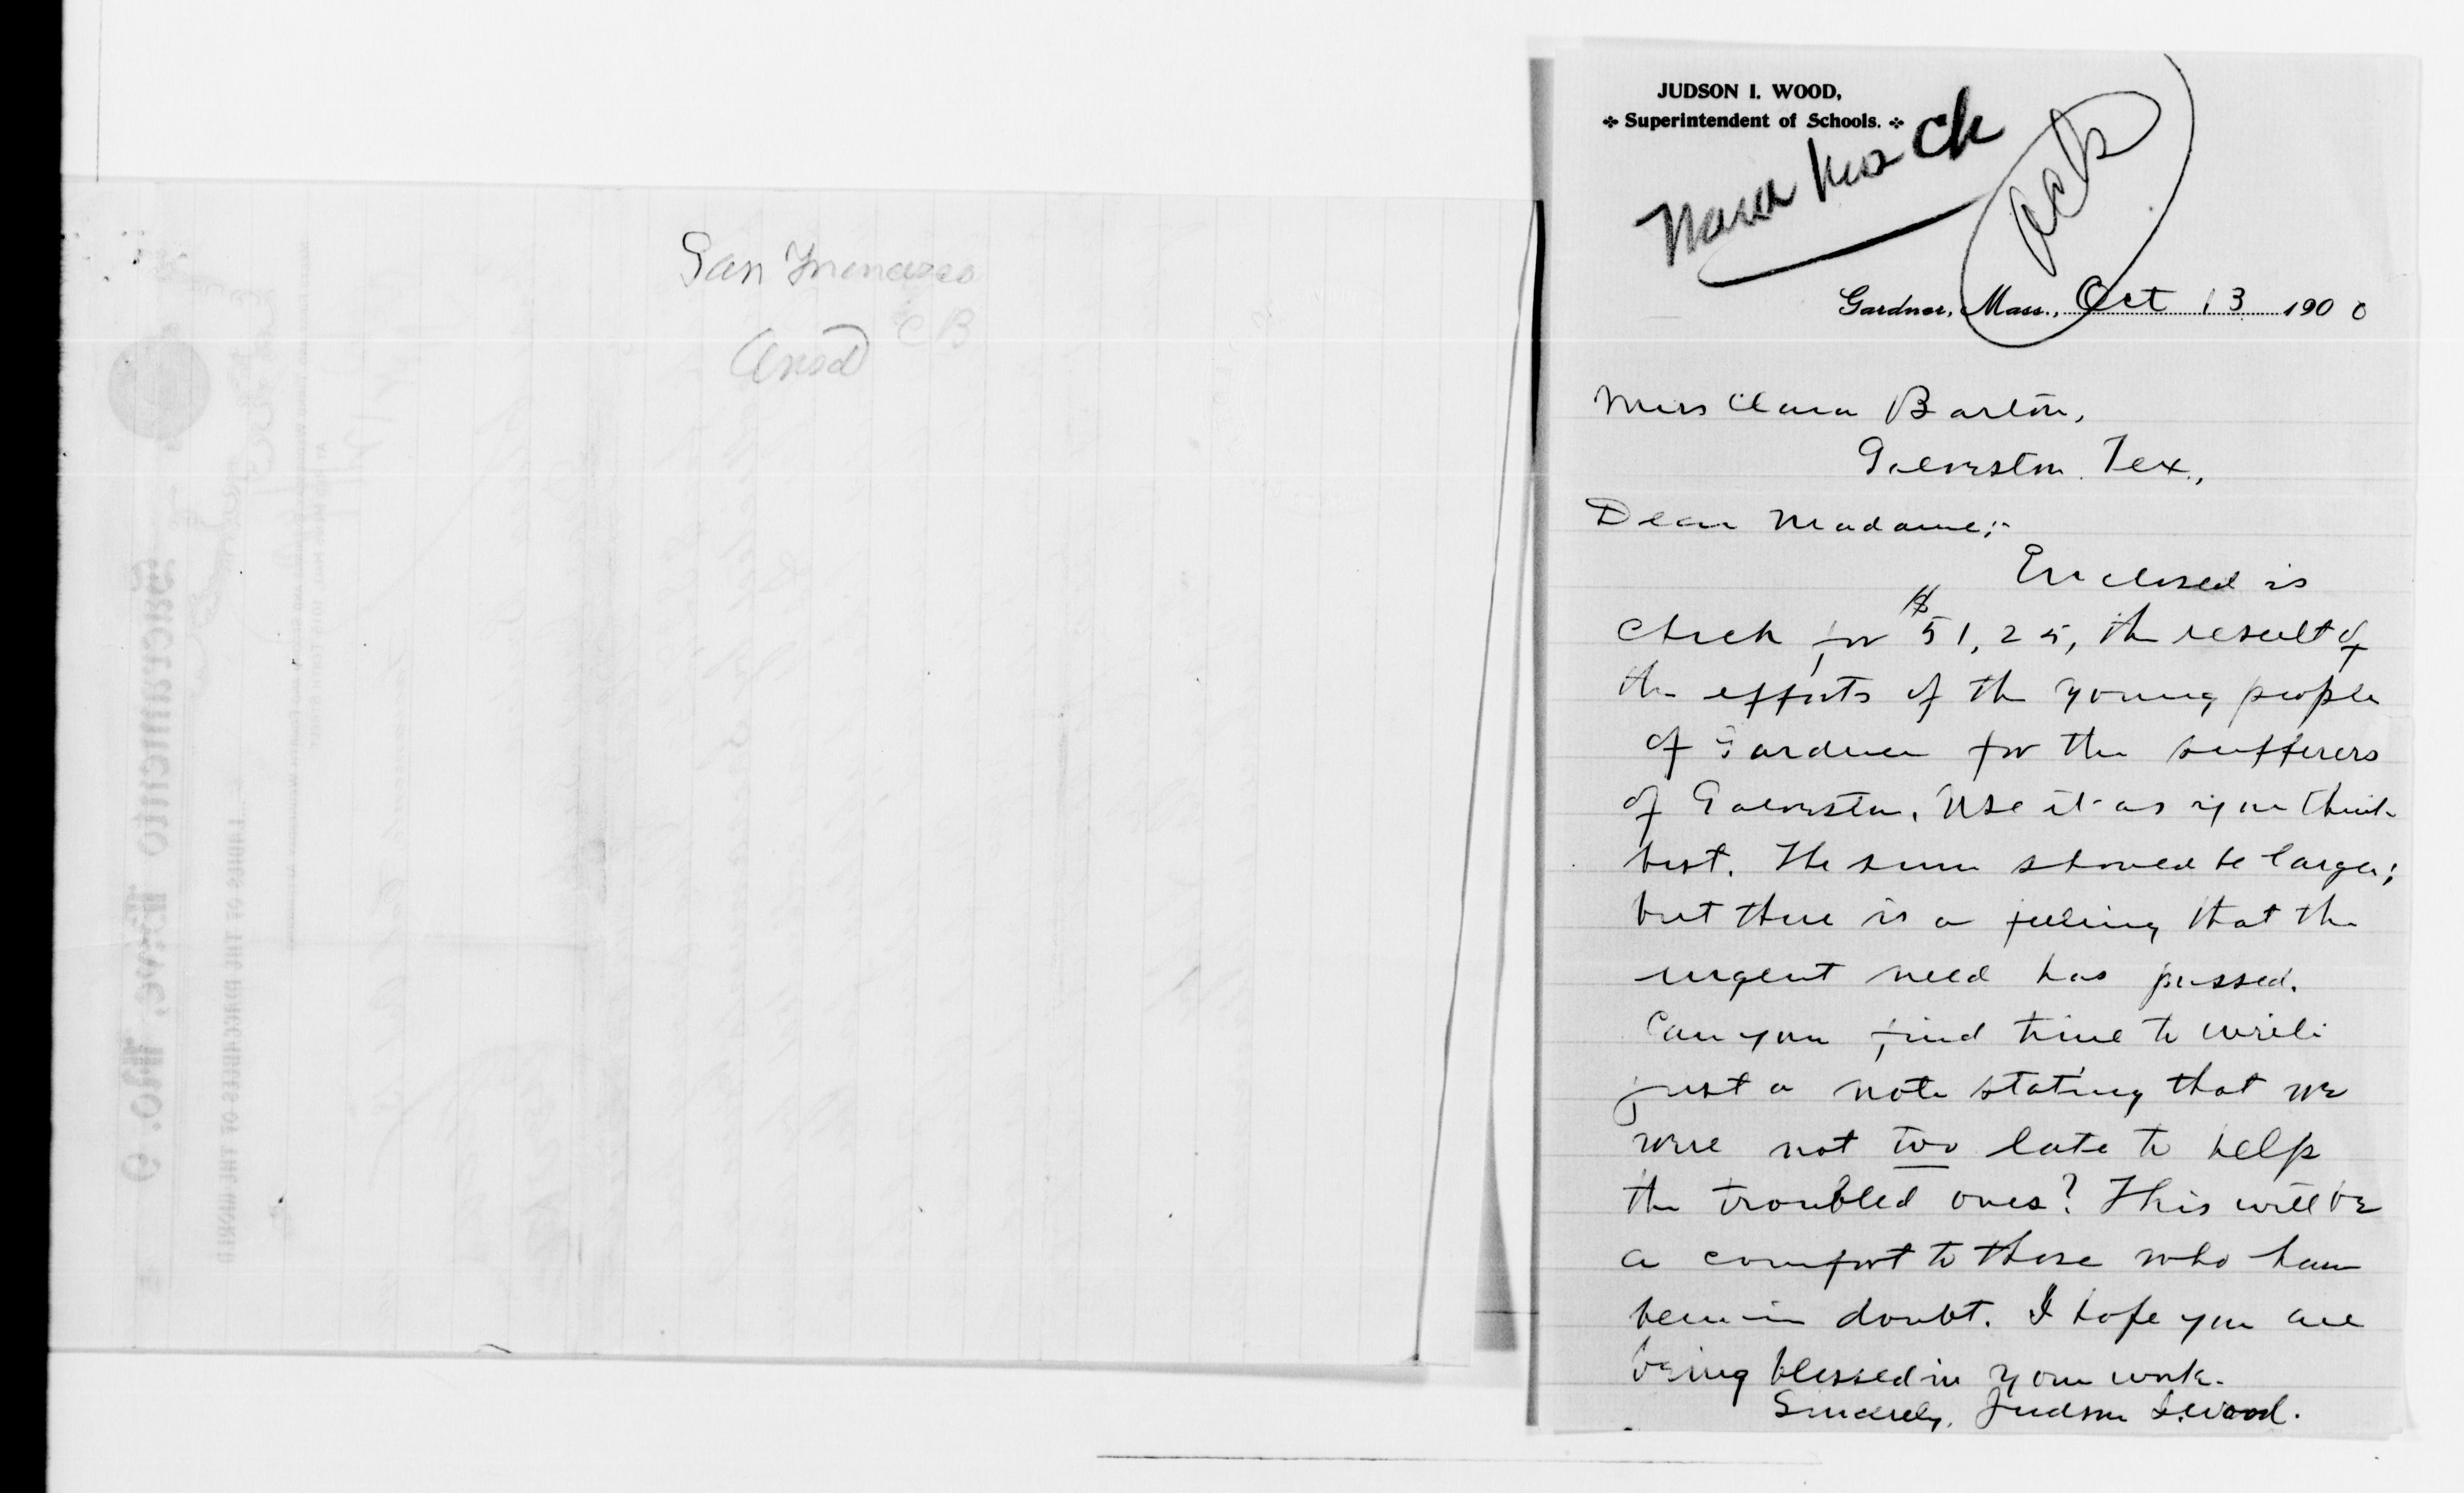 San Francisco
CB
Ansd
JUDSON I. WOOD,
Superintendent of Schools.
ck
ack
Gardner, Mass., Oct 13 1900
Miss Clara Barton,
Galveston Tex.,
Dear Madame;-
Enclosed is
check for $51,25, the result of
the efforts of the young people
of Gardner for the sufferers
of Galveston. Use it as you think
best. The sum should be larger;
but there is a feeling that the
urgent need has passed.
Can you find time to write
just a note stating that we
were not too late to help
the troubled ones? This will be
a comfort to those who have
been in doubt. I hope you are
being blessed in your work.
Sincerely, Judson I. Wood.